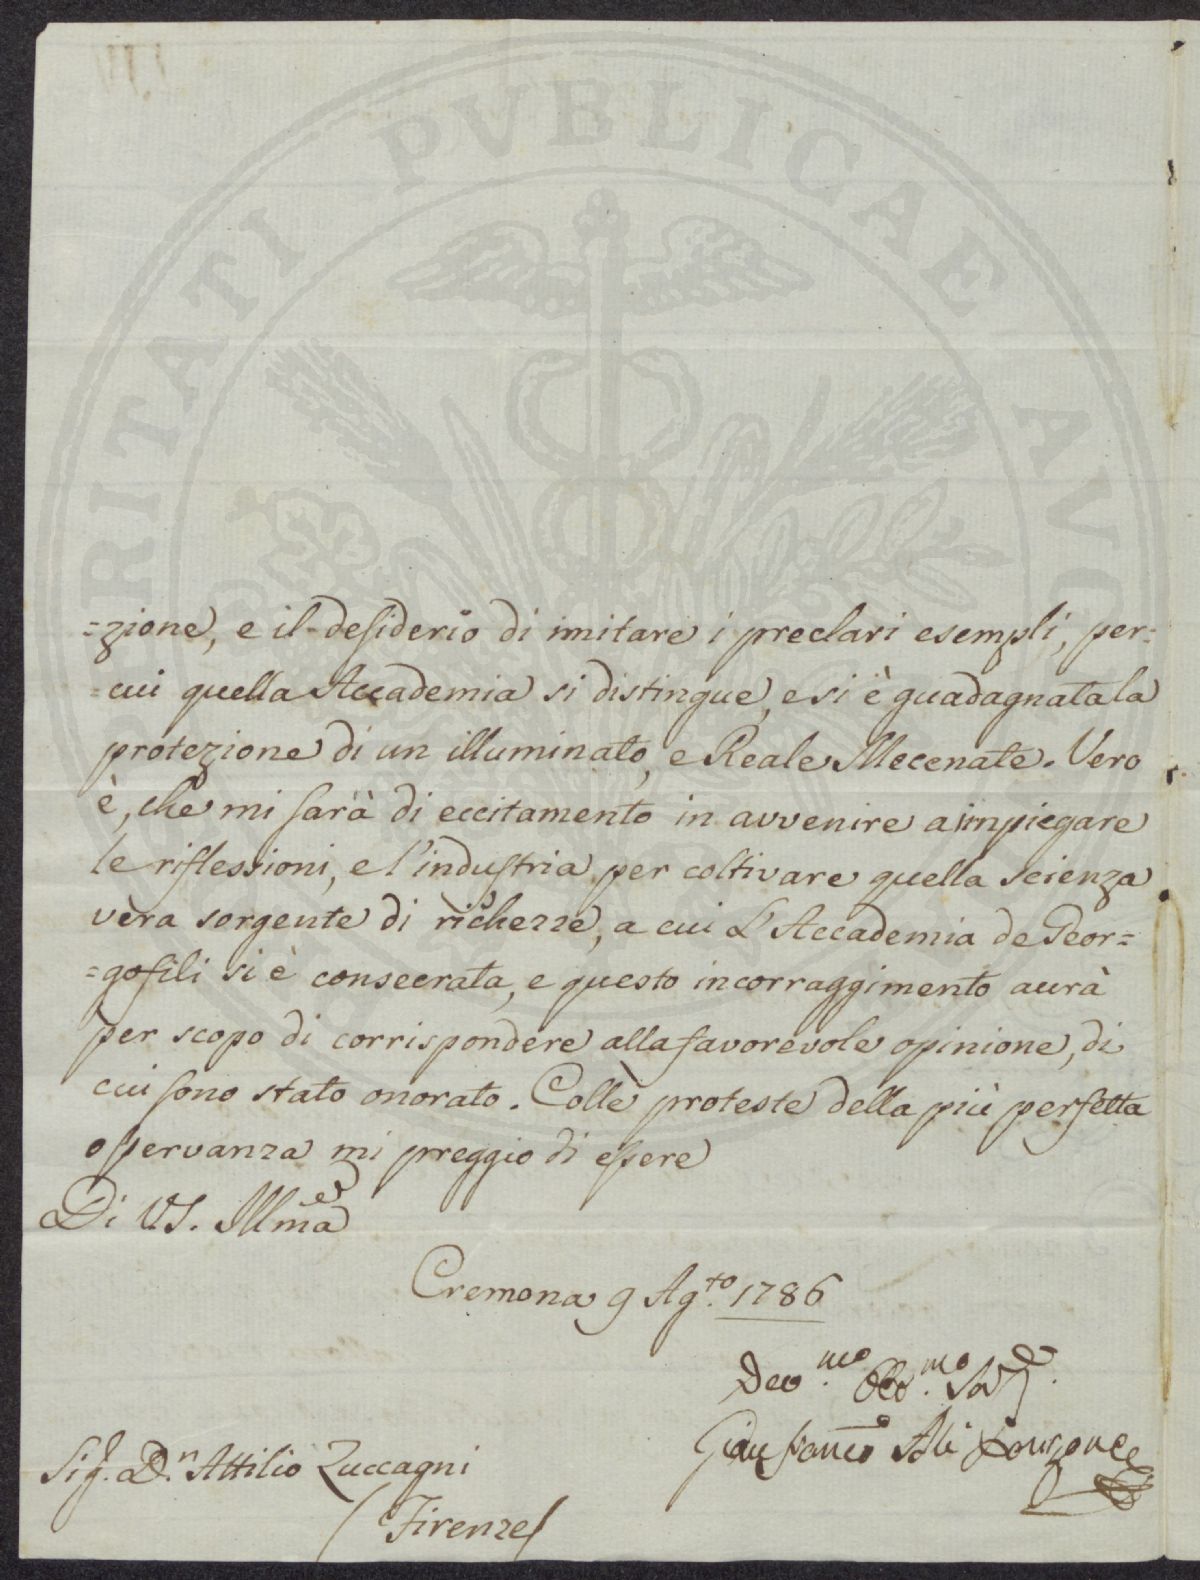 PROSPERITATI PVBLICAE AVG
=zione, e il desiderio di imitare i preclari esempli, per=
=cui quella Accademia si distingue, e si è guadagnata la
protezione di un illuminato, e Reale Mecenate. Vero
è, che mi sarà di eccitamento in avvenire a impiegare
le riflessioni, e l'industria per coltivare quella scienza
vera sorgente di richezze, a cui L'Accademia de Geor=
=gofili si è consecrata, e questo incorraggimento aurà
per scopo di corrispondere alla favorevole opinione, di
cui sono stato onorato. Colle proteste della più perfetta
osservanza mi preggio di essere
Di VS. Illma
Cremona 9 Agto. 1786
Devmo. Obbmo.
Gianfranco Ali
Sig. Dn. Attilio Zuccagni
(Firenze)